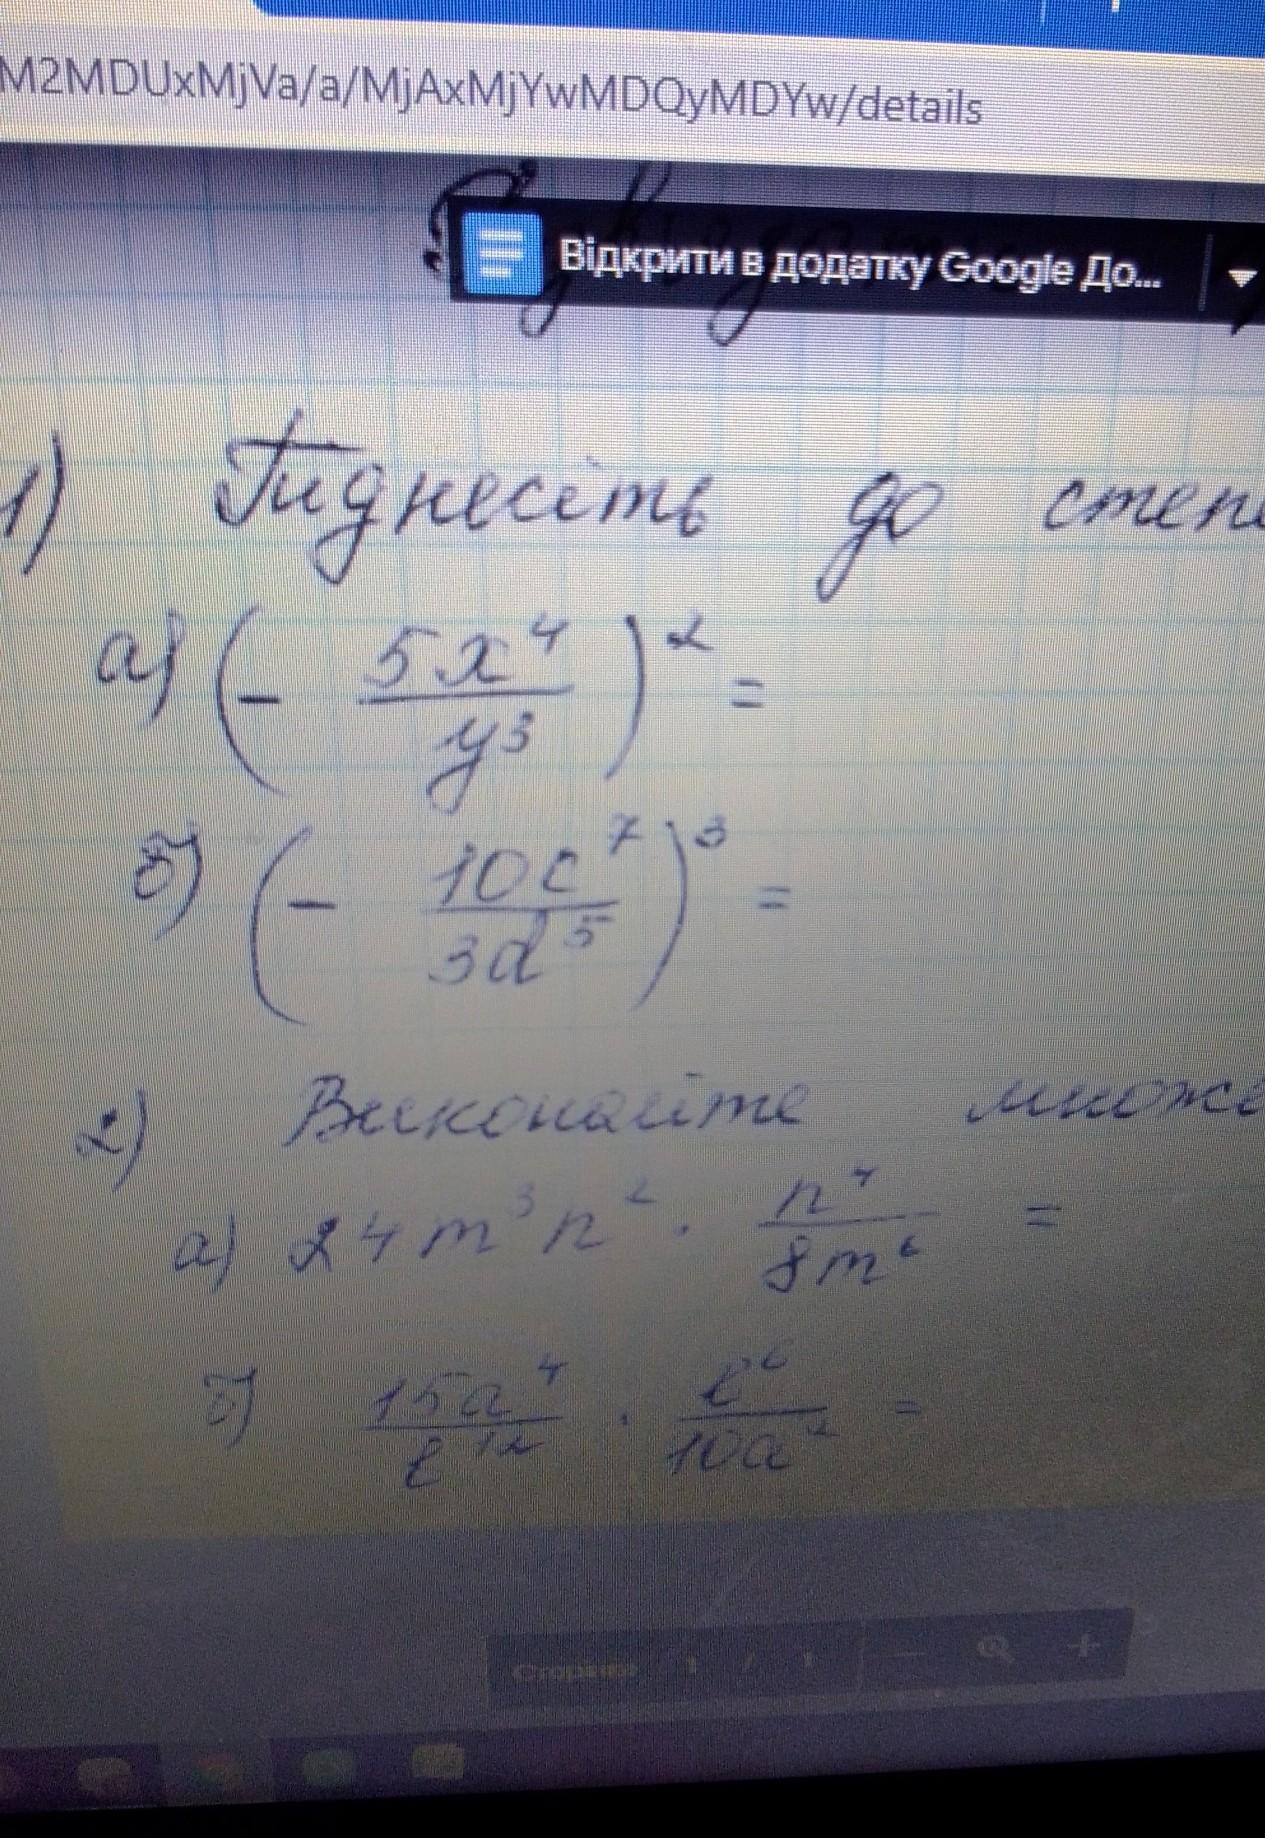 M2MDUxMjVa/a/MjAxMjYwMDQyMDYw/details
Відкрити в додатку Google До...
1) Піднесіть до степ
а) (- 5x⁴/y³)² =
б) (- 10c⁷/3d⁵)³ =
2) Виконайте множе
а) 24m³n² · n⁴/8m⁶ =
б) 15a⁴/b¹² · b⁶/10a² =
Сторінка 1 / 1